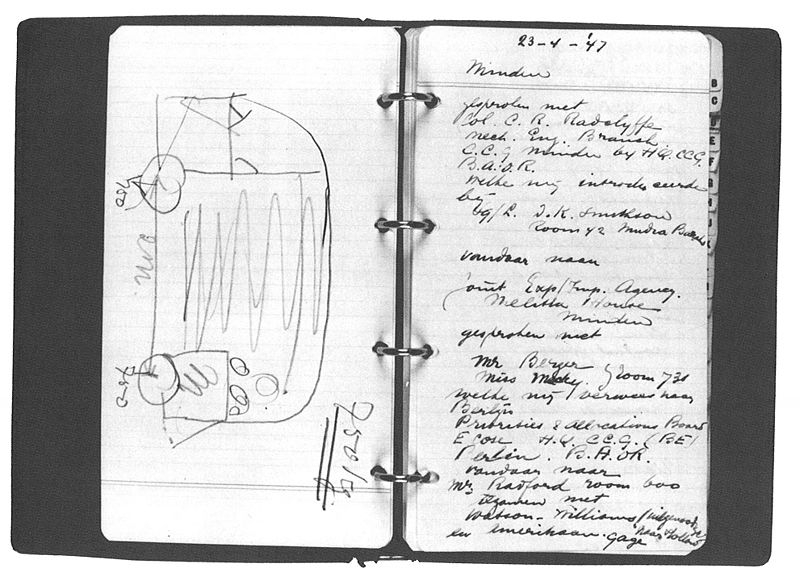 750
750
23-4-'47
Minden
gesproken met
Col. C. R. Radclyffe
Mech. Eng. Branch
C.C.G Minden by HQ. CCG.
B.A.O.R.
Welke mij introduceerde
bij
D.K.
Room 42 Mudra
vandaar naar
Joint Exp/Imp. Agency.
Melitta House
Minden
gesproken met
Mr Berger
Miss room 73
welke mij verwees naar
Berlijn
Priorities & allocations Board
E Cose H.Q. C.C.G. (BE)
Berlin. B.A.O.R.
vandaar naar
Mr Radford room 600
tezamen met
Watson-Williams
en Amerikaan. Gage
B
C
E
F